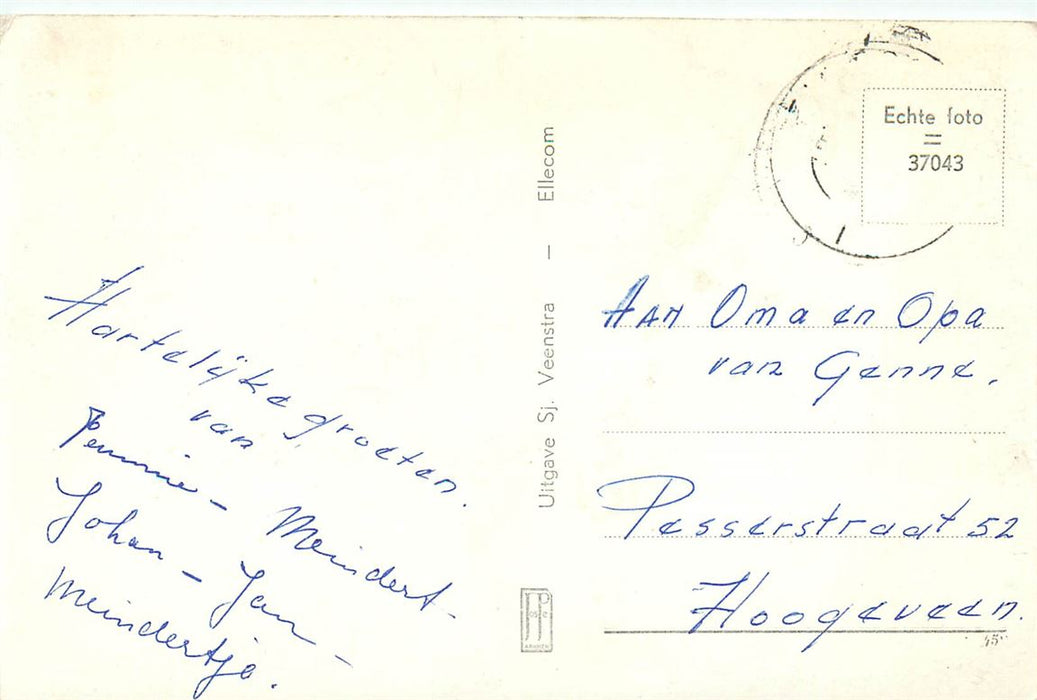 Hartelijke groeten.
van
Pemmie - Meindert -
Johan - Jan -
Meindertje.
Uitgave Sj. Veenstra — Ellecom
Echte foto
=
37043
AAN Oma en Opa
van Genne.
Pesserstraat 52
Hoogeveen.